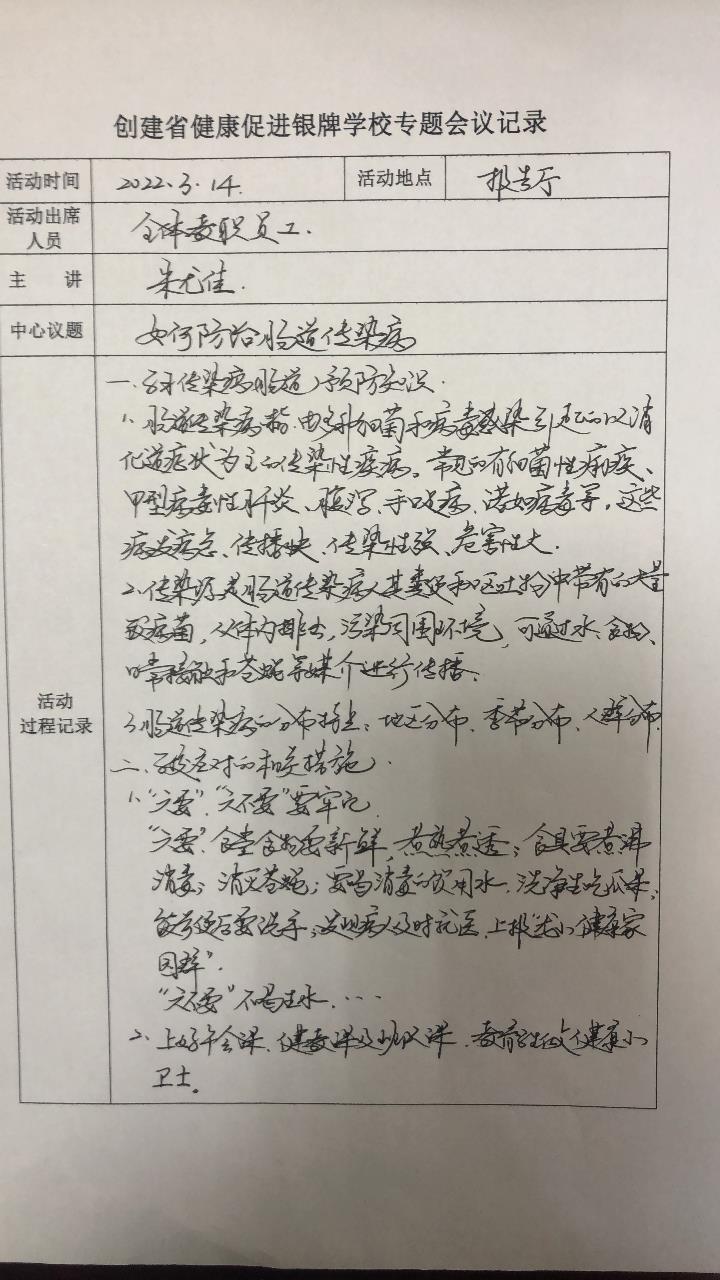 创建省健康促进银牌学校专题会议记录
活动时间 2022.3.14. 活动地点 报告厅
活动出席人员 全体教职员工.
主 讲 朱尤佳.
中心议题 如何防治肠道传染病
活动过程记录
一、对传染病肠道预防知识.
1、肠道传染病指:由多种细菌和病毒感染引起的以消
化道症状为主的传染性疾病。常见的有细菌性痢疾、
甲型病毒性肝炎、腹泻、手口病、诺如病毒等,这些
病发病急、传播快、传染性强、危害性大.
2、传染源是肠道传染病人其粪便和呕吐物中带有的大量
致病菌,从体内排出,污染周围环境,可通过水、食物、
日常接触和苍蝇等媒介进行传播。
3、肠道传染病的分布特点:地区分布、季节分布、人群分布.
二、学校应对的相关措施.
1、“六要”“六不要”要牢记
“六要”食堂食物要新鲜,煮熟煮透;食具要煮沸
消毒;消灭苍蝇;要喝消毒的饮用水,洗净生吃瓜果;
饭前便后要洗手;发现病人及时就医,上报“尤小健康家
园群”.
“六不要”不喝生水....
2、上好午会课、健教课及班队课,教育学生做健康小
卫士。